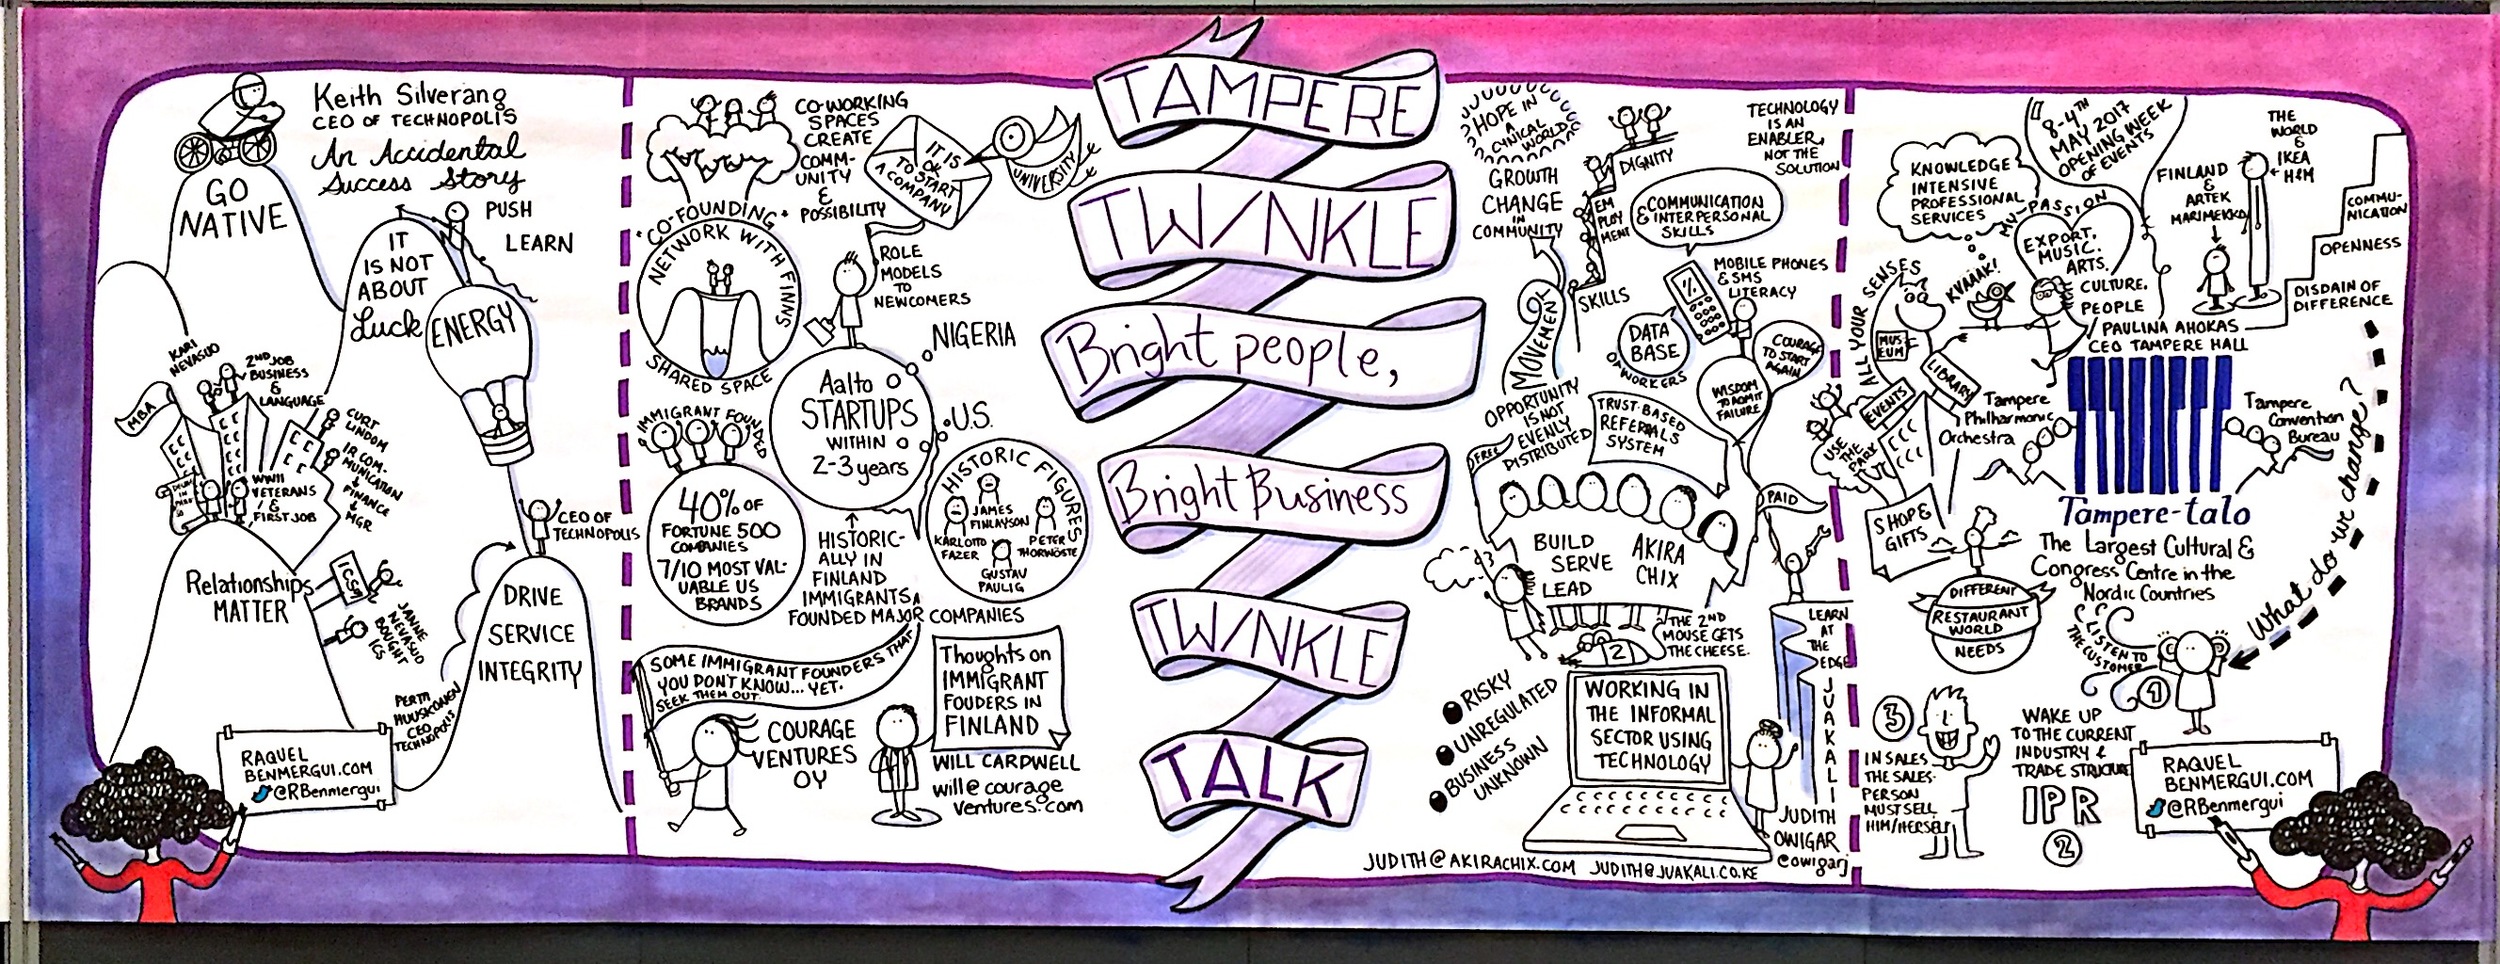 Keith Silverang
CEO OF TECHNOPOLIS
An Accidental
Success Story
GO
NATIVE
PUSH
LEARN
IT
IS NOT
ABOUT
Luck
ENERGY
KARI
NEVASUO
2ND JOB
BUSINESS
&
LANGUAGE
MBA
CURT
LINDOM
IR COM-
MUNICATION
FINANCE
MGR
WWII
VETERANS
&
FIRST JOB
CEO OF
TECHNOPOLIS
Relationships
MATTER
ICS
JANNE
NEVASUO
BOUGHT
ICS
DRIVE
SERVICE
INTEGRITY
PERTTI
HUUSKONEN
CEO
TECHNOPOLIS
RAQUEL
BENMERGUI.COM
@RBenmergui
CO-WORKING
SPACES
CREATE
COMM-
UNITY
&
POSSIBILITY
IT IS
OK
TO START
A COMPANY
UNIVERSITY
"CO-FOUNDING"
NETWORK WITH FINNS
SHARED SPACE
ROLE
MODELS
TO
NEWCOMERS
NIGERIA
U.S.
Aalto
STARTUPS
WITHIN
2-3 years
IMMIGRANT FOUNDED
40% OF
FORTUNE 500
COMPANIES
7/10 MOST VAL-
UABLE US
BRANDS
HISTORIC FIGURES
JAMES
FINLAYSON
KARL OTTO
FAZER
PETER
THORWÖSTE
GUSTAV
PAULIG
HISTORIC-
ALLY IN
FINLAND
IMMIGRANTS
FOUNDED MAJOR COMPANIES
SOME IMMIGRANT FOUNDERS THAT
YOU DON'T KNOW... YET.
SEEK THEM OUT.
COURAGE
VENTURES
OY
Thoughts on
IMMIGRANT
FOUDERS IN
FINLAND
WILL CARDWELL
will@courage
ventures.com
TAMPERE
TWINKLE
Bright people,
Bright Business
TWINKLE
TALK
HOPE IN
A
CYNICAL
WORLD
GROWTH
CHANGE
IN
COMMUNITY
DIGNITY
EM
PLOY
MENT
SKILLS
TECHNOLOGY
IS AN
ENABLER,
NOT THE
SOLUTION
COMMUNICATION
& INTERPERSONAL
SKILLS
MOBILE PHONES
& SMS
LITERACY
DATA
BASE
OF WORKERS
MOVEMENT
OPPORTUNITY
IS NOT
EVENLY
DISTRIBUTED
COURAGE
TO START
AGAIN
WISDOM
TO ADMIT
FAILURE
TRUST-BASED
REFERRALS
SYSTEM
FREE
PAID
BUILD
SERVE
LEAD
AKIRA
CHIX
THE 2ND
MOUSE GETS
THE CHEESE.
2
LEARN
AT
THE
EDGE
JUAKALI
RISKY
UNREGULATED
BUSINESS
UNKNOWN
WORKING IN
THE INFORMAL
SECTOR USING
TECHNOLOGY
JUDITH
OWIGAR
@owigarj
JUDITH@AKIRACHIX.COM JUDITH@JUAKALI.CO.KE
8-4TH
MAY 2017
OPENING WEEK
OF EVENTS
KNOWLEDGE
INTENSIVE
PROFESSIONAL
SERVICES
MY PASSION
EXPORT,
MUSIC.
ARTS.
CULTURE.
PEOPLE
KVAAAK!
ALL YOUR SENSES
MUS-
EUM
LIBRARY
EVENTS
USE
THE
PARK
THE
WORLD
&
IKEA
H&M
FINLAND
&
ARTEK
MARIMEKKO
COMMU-
NICATION
OPENNESS
DISDAIN OF
DIFFERENCE
PAULINA AHOKAS
CEO TAMPERE HALL
Tampere
Philharmonic
Orchestra
Tampere
Convention
Bureau
Tampere-talo
The Largest Cultural &
Congress Centre in the
Nordic Countries
SHOP &
GIFTS
DIFFERENT
RESTAURANT
WORLD
NEEDS
LISTEN TO
THE CUSTOMER
1
What do we change?
3
IN SALES
THE SALES-
PERSON
MUST SELL
HIM/HERSELF
WAKE UP
TO THE CURRENT
INDUSTRY &
TRADE STRUCTURE
IPR
2
RAQUEL
BENMERGUI.COM
@RBenmergui